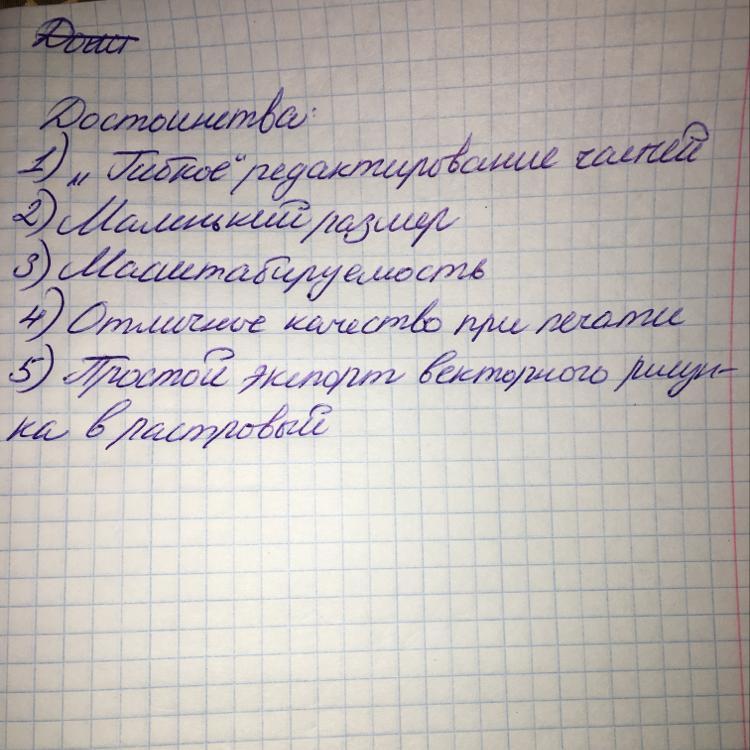 Достоинства:
1) „Гибкое“ редактирование частей
2) Маленький размер
3) Масштабируемость
4) Отличное качество при печати
5) Простой экспорт векторного рисун-
ка в растровый